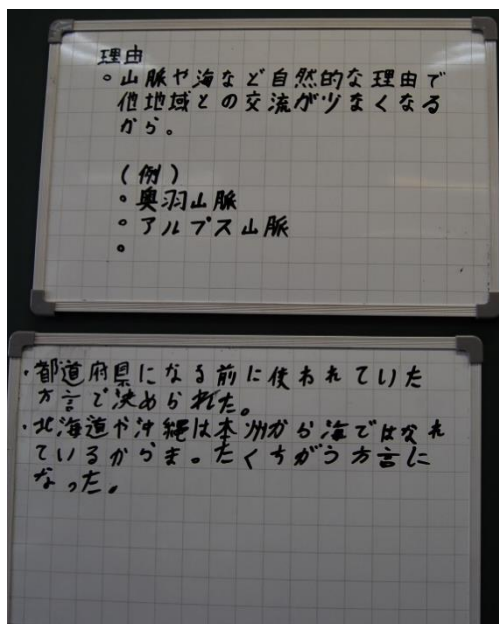 理由
。山脈や海など自然的な理由で
他地域との交流が少なくなる
から。
(例)
。奥羽山脈
。アルプス山脈
。
・都道府県になる前に使われていた
方言で決められた。
・北海道や沖縄は本州から海ではなれ
ているからま。たくちがう方言に
なった。